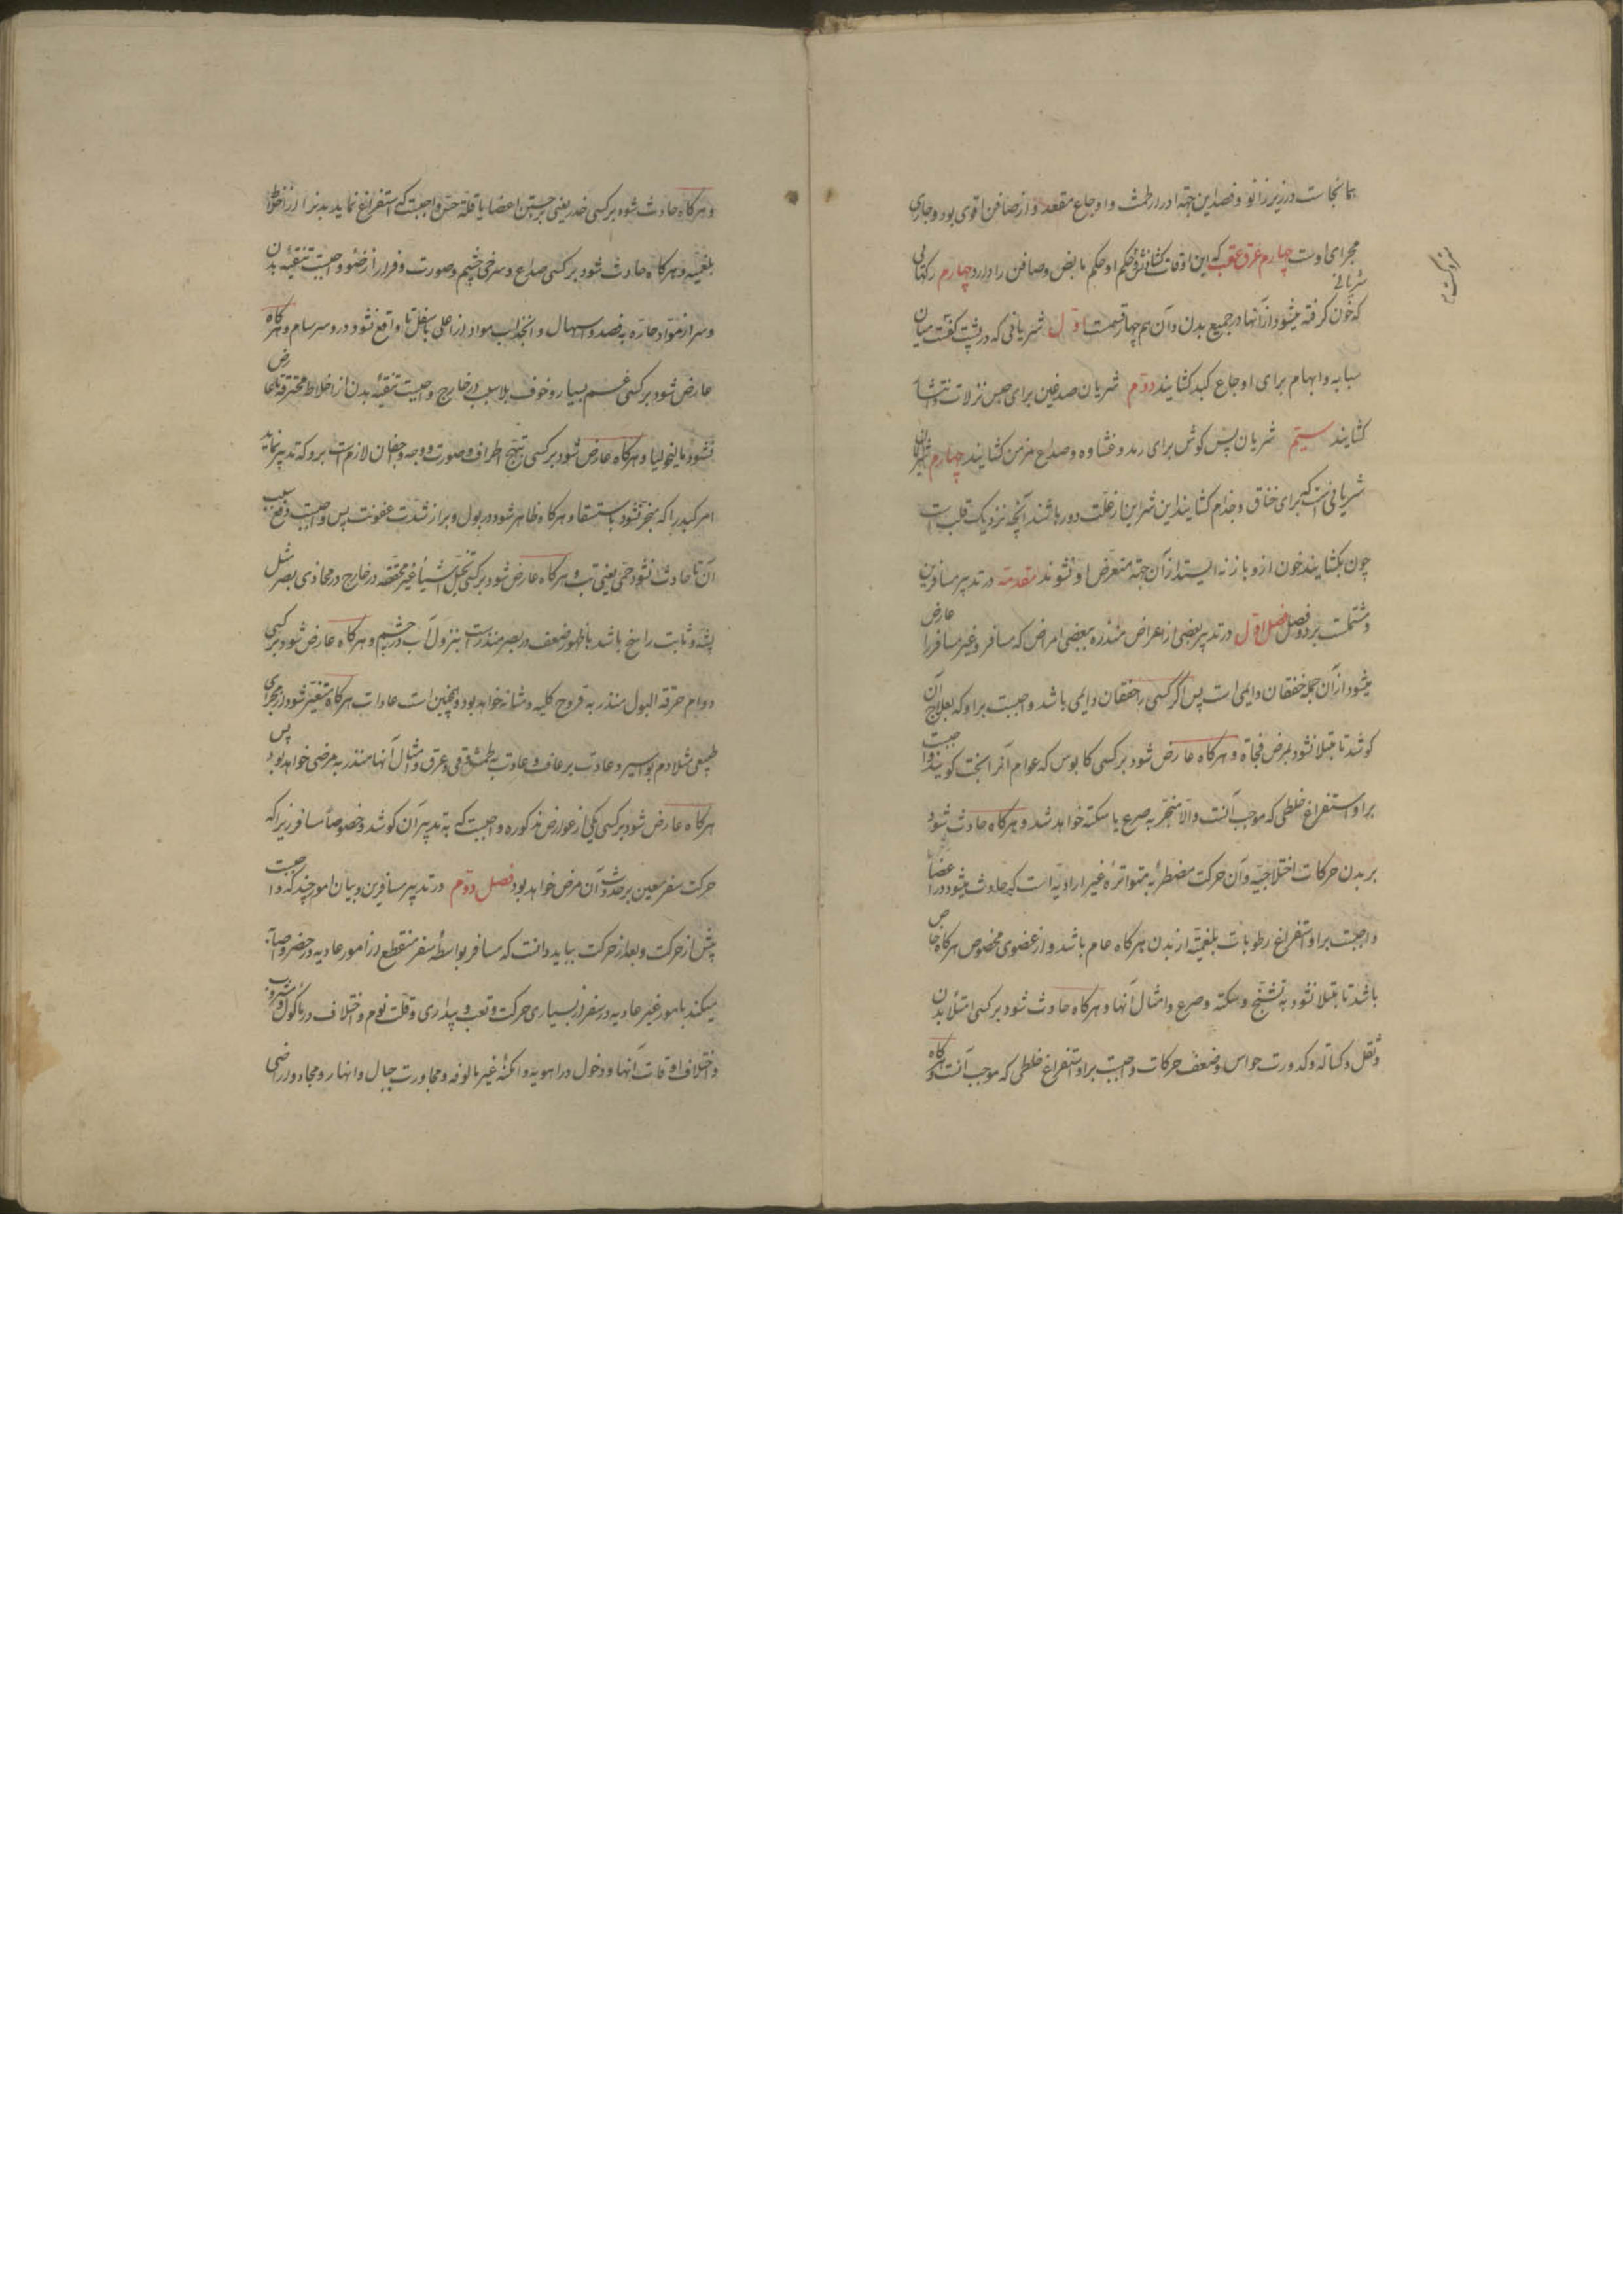 بمانجاست در زیر زانو و فصد این جهة ادرار طمث و اوجاع مقعد و از صافن اقوی بود و جاری
مجرای اوست چهارم عرق عقب که این اوقات کشانش و حکم او حکم مابض و صافن را دارد و چهارم رکهائی شریانی
که خون کرفته میشود از آنها در جمیع بدن و آن هم چهار قسمت اول شریانی که در پشت کفست میان
سبابه و ابهام برای اوجاع کبد کشایند دوم شریان صدغین برای حبس نزلات
کشایند سیم شریان پس کوش برای رمد و غشاوه و صداع مزمن کشایند چهارم
شریانی است که برای خناق و جذام کشایند این شراین از علت دور باشند آنچه نزدیک قلب است
چون بکشایند خون از و باز نه ایستد از آن جهة متعرض او نشوند مقدمه در تدبیر مسافرین
و مشتملست بر دو فصل فصل اول در تدبیر بعضی از اعراض منذره ببعضی امراض که مسافر و غیر مسافر را عارض
میشود از آن جمله خفقان دایمی است پس اگر کسی را خفقان دایمی باشد واجبست بر او که بعلاج آن
کوشد تا مبتلا نشود بمرض فجاة و هرکاه عارض شود بر کسی کابوس که عوام آنرا بخت کویند واجبست
بر او استفراغ خلطی که موجب آنست والا منجر به صرع یا سکته خواهد شد و هرکاه حادث شود
بر بدن حرکات اختلاجیه و آن حرکت مضطربه متواترهٔ غیر ارادیه است که حادث میشود در اعضا
واجبست بر او استفراغ رطوبات بلغمیه از بدن هرکاه عام باشد و از عضوی مخصوص هرکاه خاص
باشد تا مبتلا نشود به تشنج و سکته و صرع و امثال آنها و هرکاه حادث شود بر کسی امتلأ بدن
و ثقل و کساله و کدورت حواس و ضعف حرکات واجبست بر او استفراغ خلطی که موجب آنست و هرکاه
و هرکاه حادث شود بر کسی خدر یعنی بی حسی اعضا یا قلة حس واجبست که استفراغ نماید بدنرا از اخلاط
بلغمیه و هرکاه حادث شود بر کسی صداع و سرخی چشم و صورت و فرار از ضوء واجبست تنقیهٔ بدن
و سر از مواد حاره به فصد و اسهال و انجذاب مواد از اعلی باسفل تا واقع نشود در و سرسام و هرکاه
عارض شود بر کسی غم بسیار و خوف بلا سبب در خارج واجبست تنقیهٔ بدن از اخلاط محترقه تا عارض
نشود مالیخولیا و هرکاه عارض شود بر کسی تهیج اطراف و صورت و وجه و جفان لازم است برو که تدبیر نماید
امر کبد را که منجر نشود باستسقا و هرکاه ظاهر شود در بول و براز شدت عفونت پس واجبست دفع سبب
آن تا حادث نشود حمی یعنی تب و هرکاه عارض شود بر کسی تخیل اشیأ غیر محققه در خارج در محاذی بصر مثل
پشه و ثابت راسخ باشد با ظهور ضعف در بصر منذر است بنزول آب در چشم و هرکاه عارض شود بر کسی
دوام حرقة البول منذر به قروح کلیه و مثانه خواهد بود و همچنین است عادات هرکاه متغیر شود از مجرای
طبیعی مثلا دم بواسیر و عادت بر عاف و عادت به طمث و قی و عرق و امثال آنها منذر به مرضی خواهد بود پس
هرکاه عارض شود بر کسی یکی از عوارض مذکوره واجبست که به تدبیر آن کوشد و خصوصاً مسافر زیرا که
حرکت سفر معین بر حدوث آن مرض خواهد بود فصل دوم در تدبیر مسافرین و بیان امور چند که واجبست
پیش از حرکت و بعد از حرکت بباید دانست که مسافر بواسطهٔ سفر منقطع از امور عادیه در حضر و
میکند بامور غیر عادیه در سفر از بسیاری حرکت و تعب و بیداری و قلت نوم و اختلاف در مأکول و مشروب
و اختلاف اوقات آنها و دخول در اهویه و امکنهٔ غیر مالوفه و مجاورت جبال و انهار و